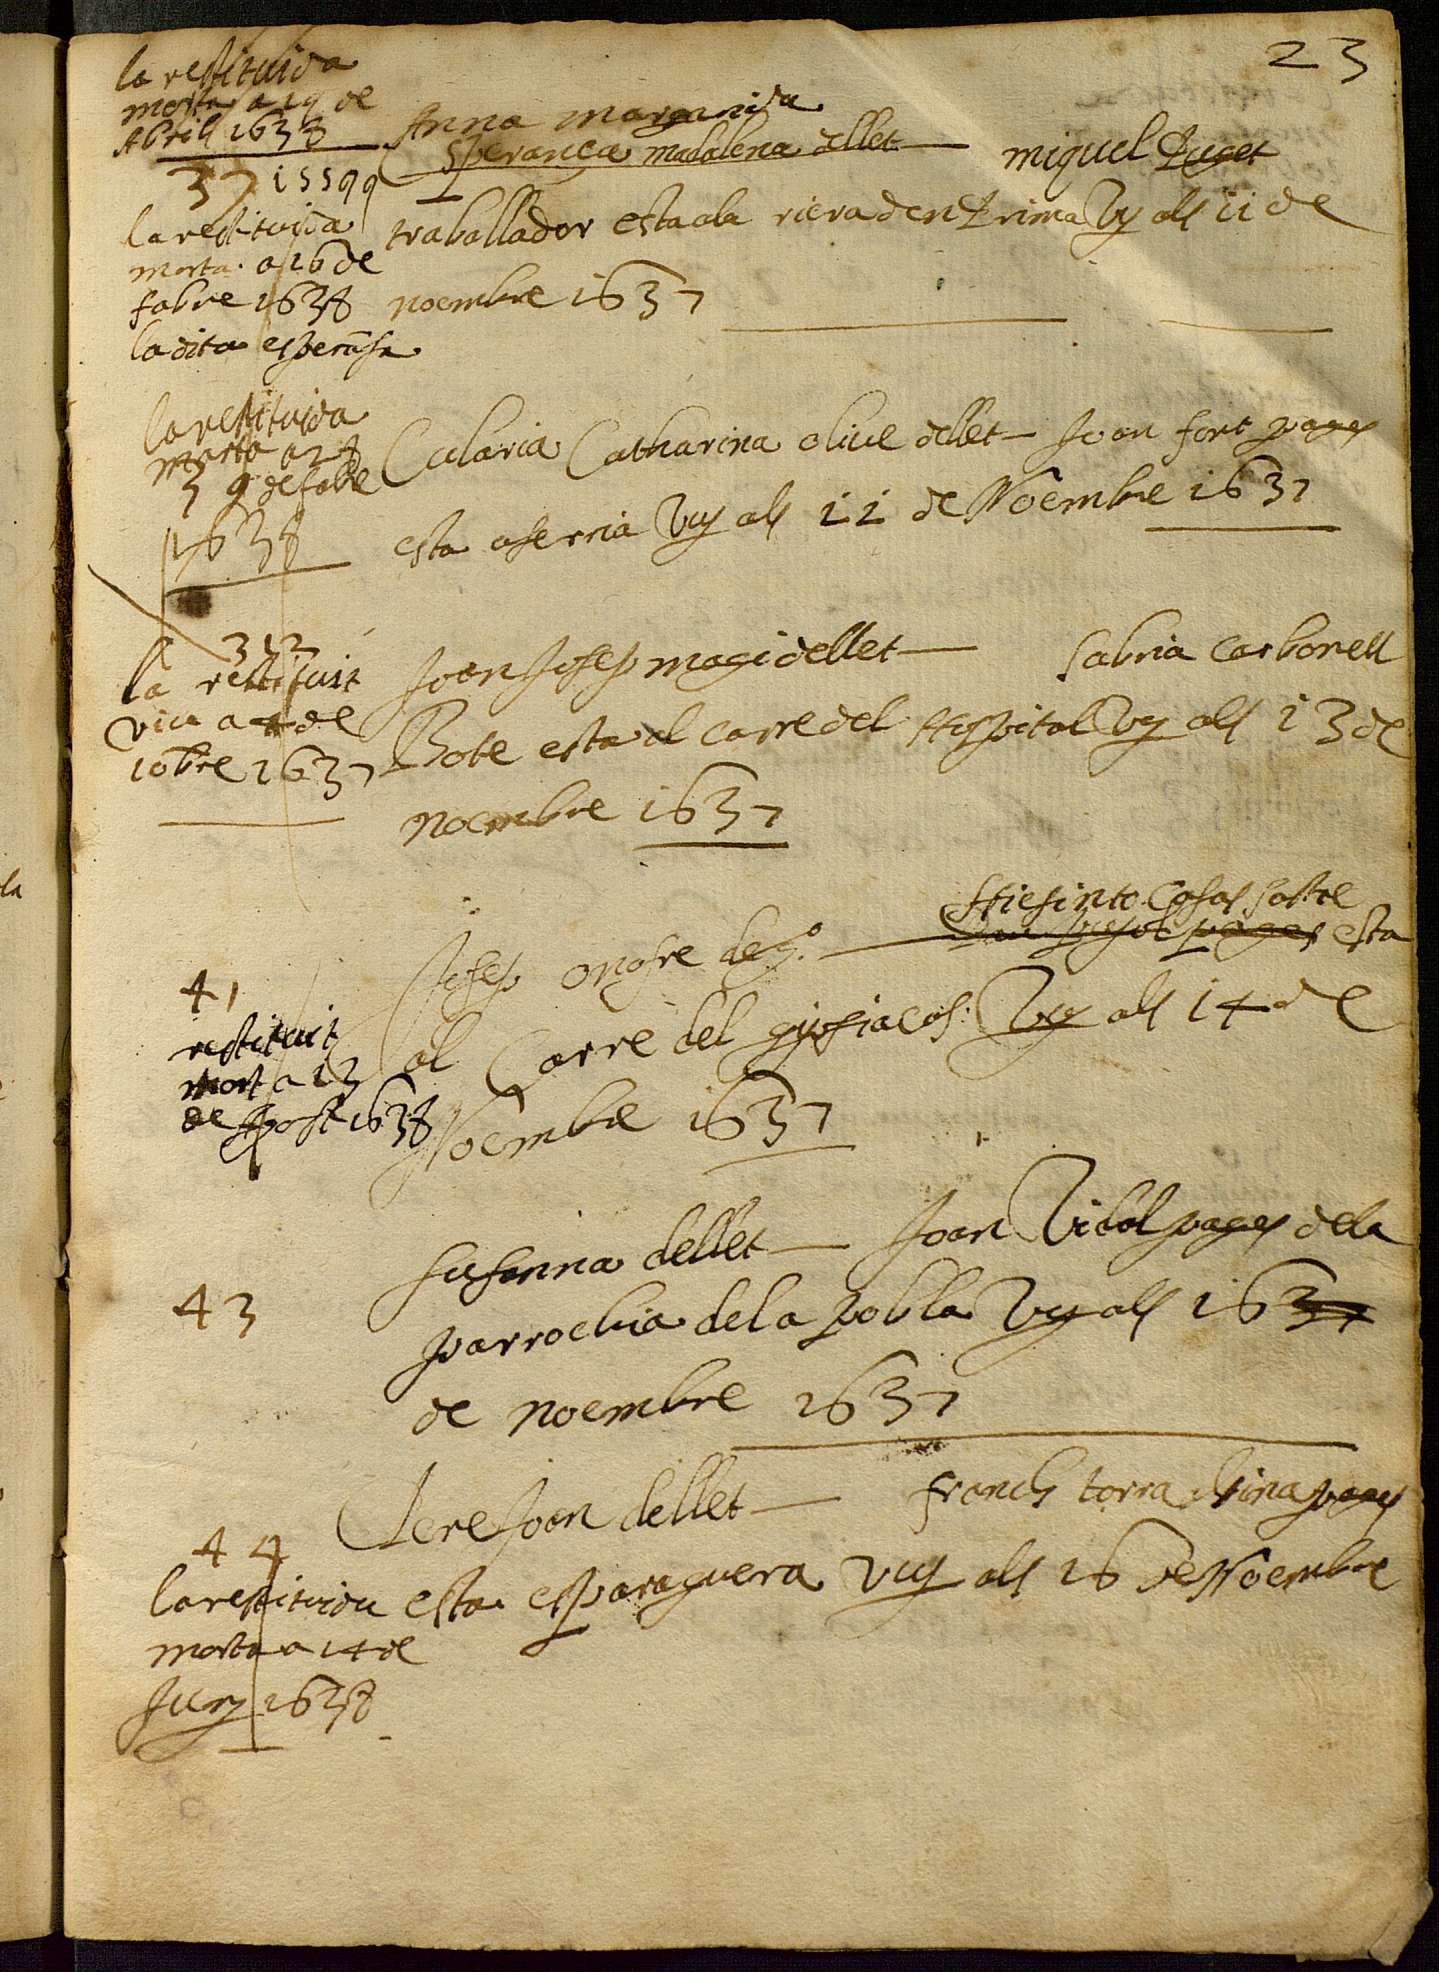 23
la restituida
morta a 19 de
Abril 1638
Anna margarida
Sperança madalena dellet — miguel Puget
37
la restituida
morta a 16 de
fabre 1638
la dita esperāsa
traballador esta ala riera den Prima Vy als 11 de
noembre 1637
la restituida
morta a 27
39 de fabre
1638
Eularia Catharina olive dellet — Joan fort pages
esta a serria Vuy als 11 de Noembre 1637
la restituit
viu a 4 de
10bre 1637
Joan Josep magi dellet — Sabria Carbonell
Bote esta al carre del Hospital Vy als 13 de
noembre 1637
Hiesinto Casas sastre
Josep onofre de g.º — esta
41
restituit
mort a 13
de Agost 1638
al Carre del gipsiacos: Vuy als 14 de
Noembre 1637
43
Susanna dellet — Joan Vidal pages dela
parrochia de la pobla Vuy als 16 37
de noembre 1637
Pere Joan dellet — franch torra pages
44
la restituida
morta a 14 de
Juny 1638
esta esparaguera vuy als 16 de Noembre